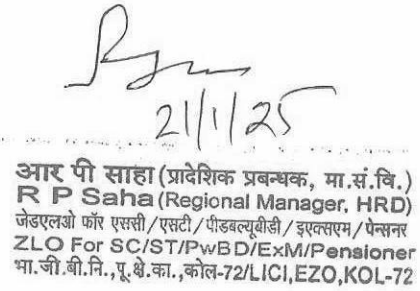 21/1/25
आर पी साहा (प्रादेशिक प्रबन्धक, मा.सं.वि.)
R P Saha (Regional Manager, HRD)
जेडएलओ फॉर एससी/एसटी/पीडबल्यूबीडी/इएक्सएम/पेन्सनर
ZLO For SC/ST/PwBD/ExM/Pensioner
भा.जी.बी.नि.,पू.क्षे.का.,कोल-72/LICI,EZO,KOL-72